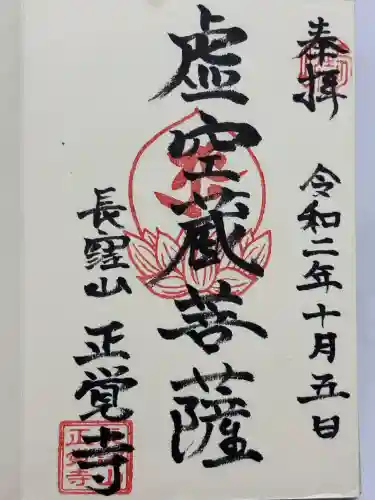 奉拝
令和二年十月五日
虚空蔵菩薩
長窪山 正覚寺